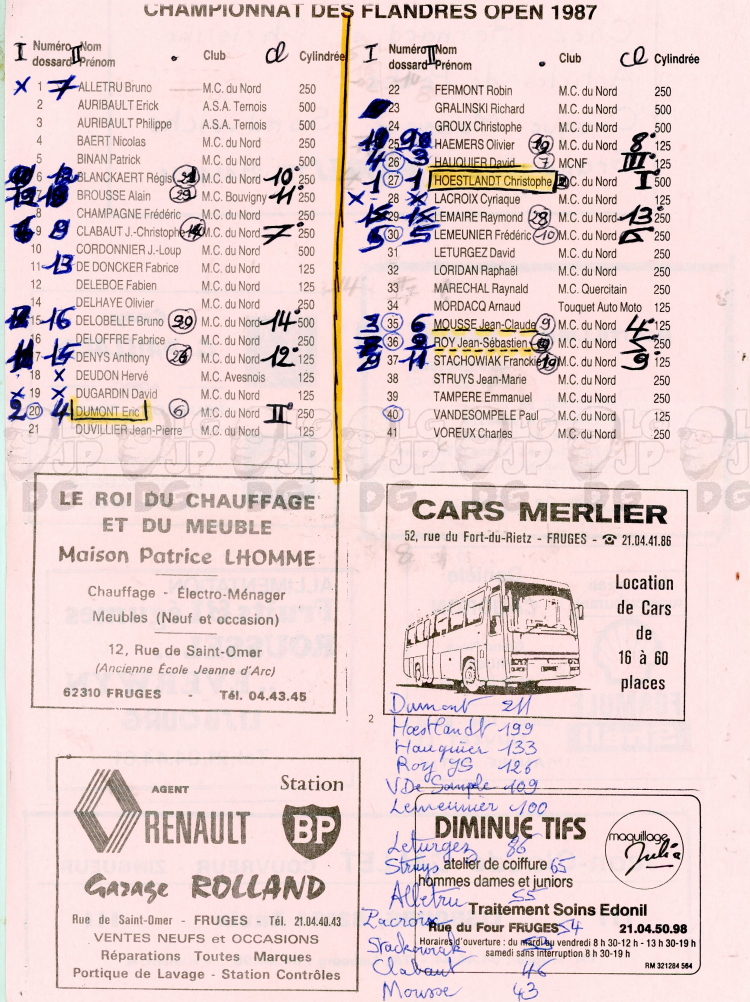 CHAMPIONNAT DES FLANDRES OPEN 1987
I Numéro dossard II Nom Prénom Club cl Cylindrée
X 1 7 ALLETRU Bruno M.C. du Nord 250
2 AURIBAULT Erick A.S.A. Ternois 500
3 AURIBAULT Philippe A.S.A. Ternois 500
4 BAERT Nicolas M.C. du Nord 250
5 BINAN Patrick M.C. du Nord 500
6 12 BLANCKAERT Régis M.C. du Nord 10° 250
BROUSSE Alain 29 M.C. Bouvigny 11° 250
8 CHAMPAGNE Frédéric M.C. du Nord 250
9 9 CLABAUT J.-Christophe M.C. du Nord 7° 250
10 CORDONNIER J.-Loup M.C. du Nord 500
11 13 DE DONCKER Fabrice M.C. du Nord 125
12 DELEBOE Fabien M.C. du Nord 125
14 DELHAYE Olivier M.C. du Nord 250
15 16 DELOBELLE Bruno 39 M.C. du Nord 14° 500
16 DELOFFRE Fabrice M.C. du Nord 250
17 DENYS Anthony 26 M.C. du Nord 12° 125
18 X DEUDON Hervé M.C. Avesnois 125
X 19 X DUGARDIN David M.C. du Nord 125
2 20 4 DUMONT Eric 6 M.C. du Nord II° 250
21 DUVILLIER Jean-Pierre M.C. du Nord 125
I Numéro dossard II Nom Prénom Club cl Cylindrée
22 FERMONT Robin M.C. du Nord 250
23 GRALINSKI Richard M.C. du Nord 500
24 GROUX Christophe M.C. du Nord 500
25 HAEMERS Olivier 19 M.C. du Nord 8° 125
4 26 3 HAUQUIER David 7 MCNF III° 125
1 27 1 HOESTLANDT Christophe 2 M.C. du Nord I° 500
X 28 X LACROIX Cyriaque M.C. du Nord 125
29 LEMAIRE Raymond 28 M.C. du Nord 13° 250
30 5 LEMEUNIER Frédéric 10 M.C. du Nord 250
31 LETURGEZ David M.C. du Nord 250
32 LORIDAN Raphaël M.C. du Nord 250
33 MARECHAL Raynald M.C. Quercitain 250
34 MORDACQ Arnaud Touquet Auto Moto 125
3 35 6 MOUSSE Jean-Claude 9 M.C. du Nord 4° 125
36 ROY Jean-Sébastien M.C. du Nord 5° 250
37 11 STACHOWIAK Franckie 19 M.C. du Nord 9° 125
38 STRUYS Jean-Marie M.C. du Nord 250
39 TAMPERE Emmanuel M.C. du Nord 250
40 VANDESOMPELE Paul M.C. du Nord 125
41 VOREUX Charles M.C. du Nord 250
LGJP DG
LE ROI DU CHAUFFAGE
ET DU MEUBLE
Maison Patrice LHOMME
Chauffage - Électro-Ménager
Meubles (Neuf et occasion)
12, Rue de Saint-Omer
(Ancienne École Jeanne d'Arc)
62310 FRUGES Tél. 04.43.45
CARS MERLIER
52, rue du Fort-du-Rietz - FRUGES - ☎ 21.04.41.86
Location
de Cars
de
16 à 60
places
2
Dumont 211
Hoestlandt 199
Hauquier 133
Roy JS 126
VDe Sompele 109
Lemeunier 100
Leturgez 86
Struys 65
Alletru 55
Lacroix 54
Stackowiak
Clabaut 46
Mousse 43
AGENT
RENAULT
Station
BP
Garage ROLLAND
Rue de Saint-Omer - FRUGES - Tél. 21.04.40.43
VENTES NEUFS et OCCASIONS
Réparations Toutes Marques
Portique de Lavage - Station Contrôles
DIMINUE TIFS
atelier de coiffure
hommes dames et juniors
maquillage
Julia
Traitement Soins Edonil
Rue du Four FRUGES 21.04.50.98
Horaires d'ouverture : du mardi au vendredi 8 h 30-12 h - 13 h 30-19 h
samedi sans interruption 8 h 30-19 h
RM 321284 564